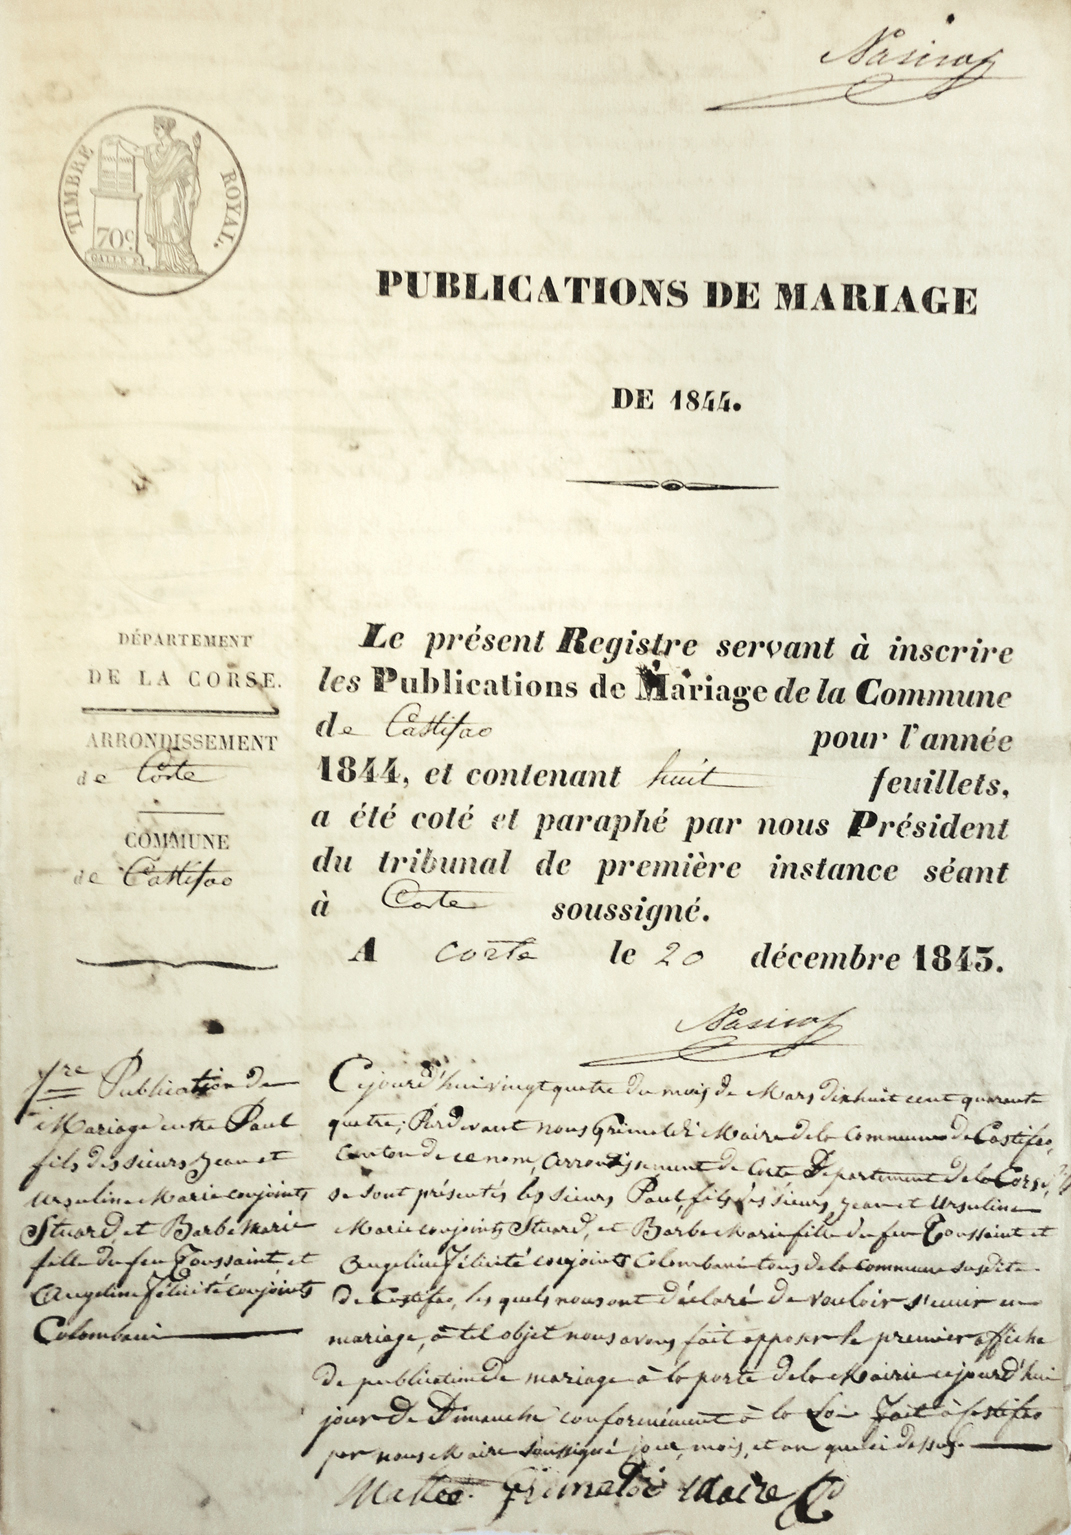 TIMBRE ROYAL.
70c
PUBLICATIONS DE MARIAGE
DE 1844.
DÉPARTEMENT
DE LA CORSE.
ARRONDISSEMENT
de Corte
COMMUNE
de Castifao
Le présent Registre servant à inscrire
les Publications de Mariage de la Commune
de Castifao pour l'année
1844, et contenant huit feuillets,
a été coté et paraphé par nous Président
du tribunal de première instance séant
à Corte soussigné.
A Corte le 20 décembre 1843.
1re Publication de
Mariage entre Paul
fils des sieurs Jean et
Ursuline Marie conjoints
Stuard, et Barbe Marie
fille du feu Toussaint, et
Angeline Félicité conjoints
Colombani
Cejourd'hui vingt quatre du mois de Mars dixhuit cent quarante
quatre; Pardevant nous Grimaldi Maire de la Commune de Castifao,
Canton de ce nom, Arrondissement de Corte Département de la Corse,
se sont présentés les sieurs Paul, fils des sieurs Jean et Ursuline
Marie conjoints Stuard, et Barbe Marie fille du feu Toussaint et
Angeline Félicité conjoints Colombani tous de la commune susdite
de Castifao, les quels nous ont déclaré de vouloir s'unir en
mariage, à tel objet nous avons fait apposer la premier affiche
de publication de mariage à la porte de la Mairie cejourd'hui
jour de Dimanche conformément à la Loi Fait à Castifao
par nous Maire soussigné jour, mois, et an que ci dessus
Matteo Grimaldi Maire